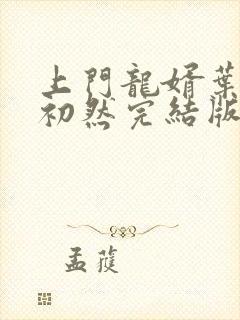 上門龍婿葉
初然完結版
孟蓰